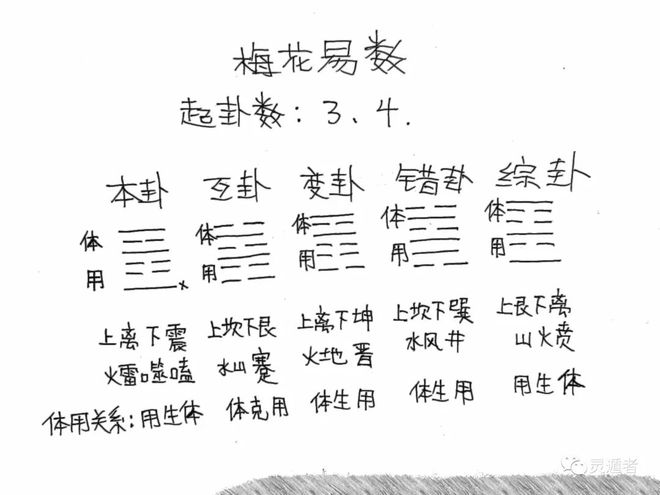 梅花易数
起卦数：3、4.
本卦 互卦 变卦 错卦 综卦
体 体 体 体 体
用 用 用 用 用
x
上离下震 上坎下艮 上离下坤 上坎下巽 上艮下离
火雷噬嗑 水山蹇 火地晋 水风井 山火贲
体用关系：用生体 体克用 体生用 体生用 用生体
灵遁者